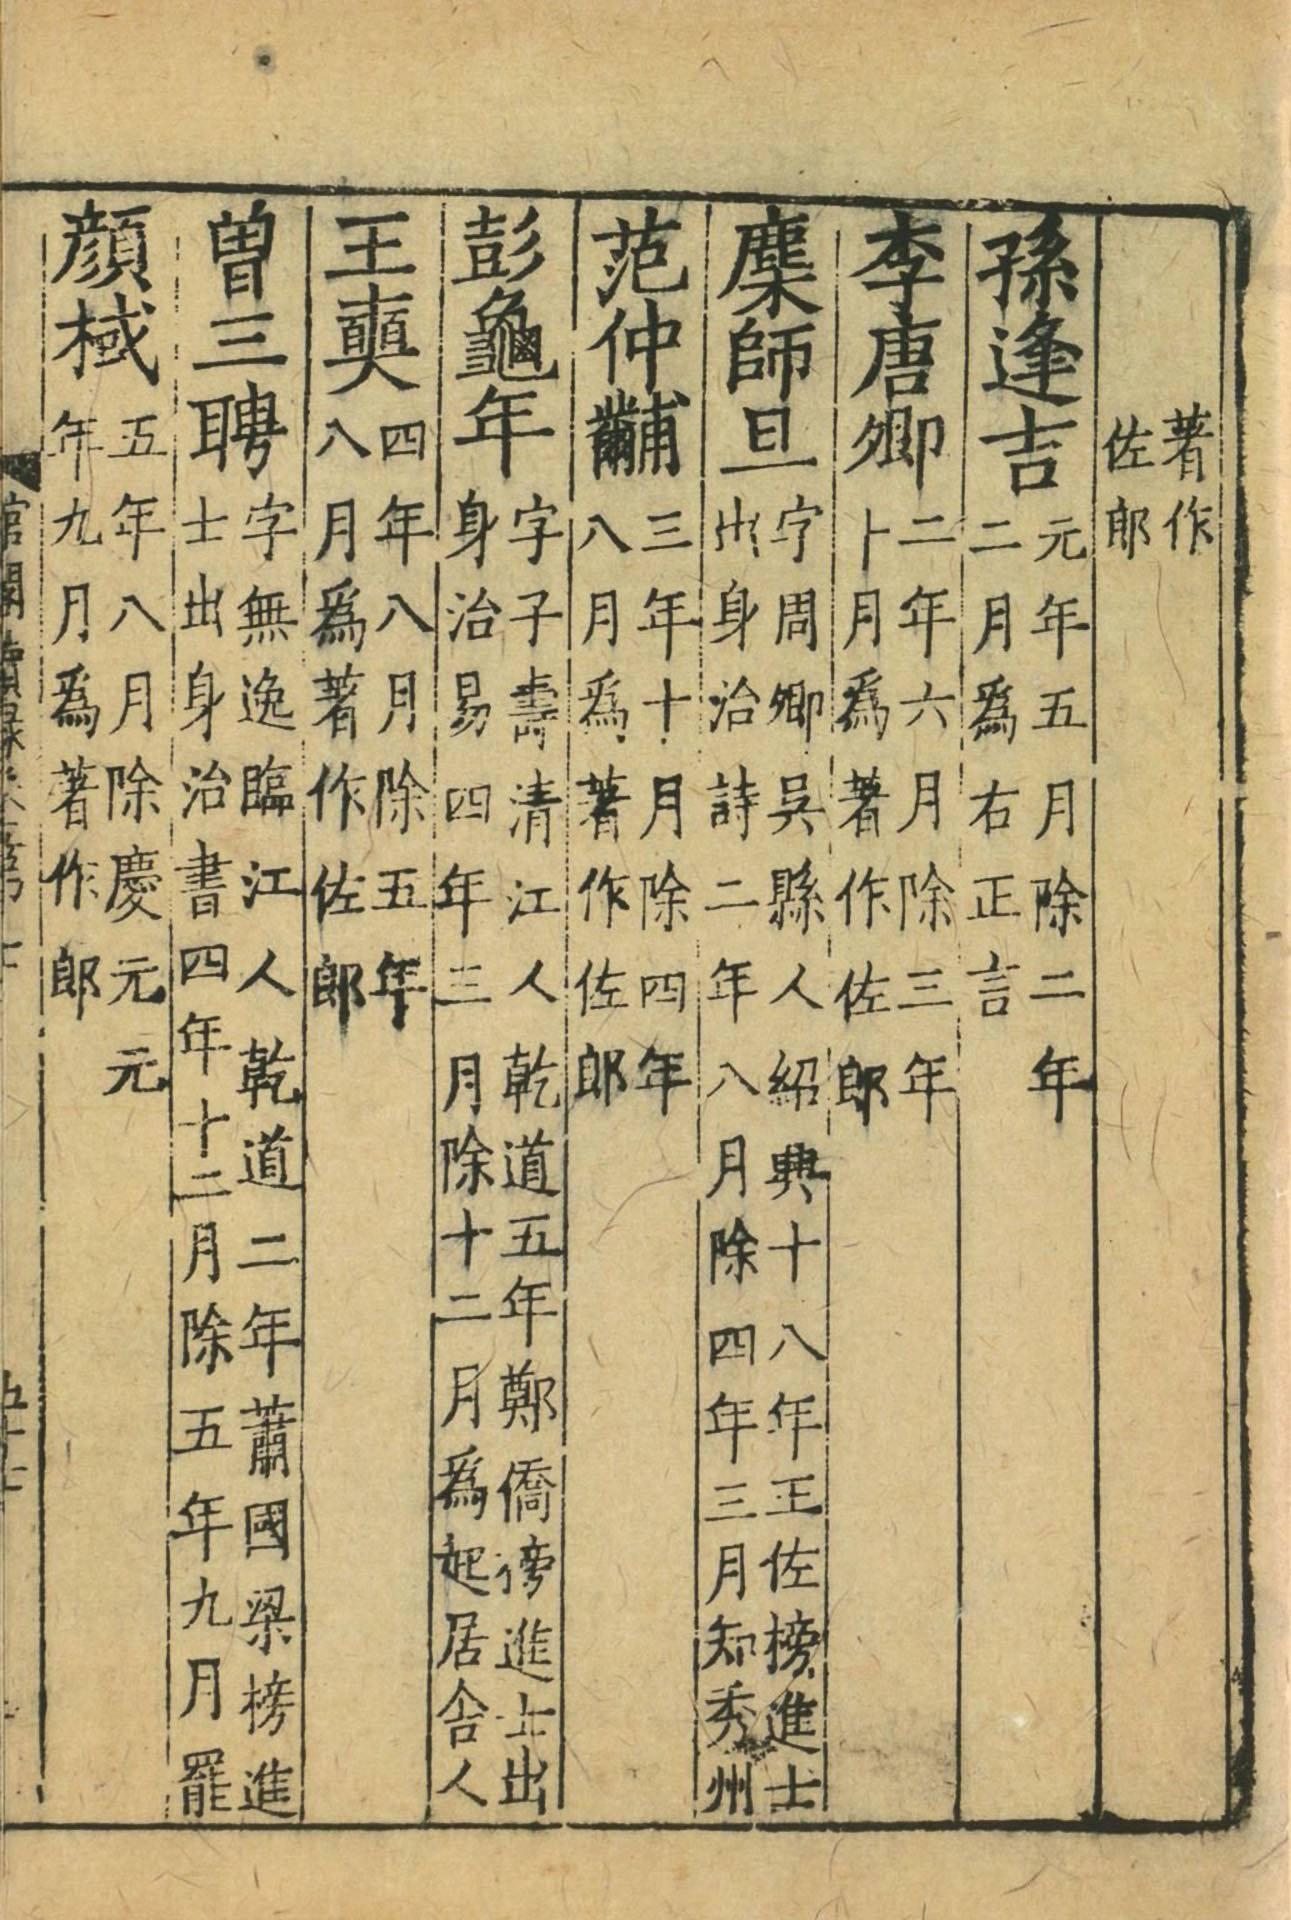 著作佐郎
孫逢吉元年五月除二年二月爲右正言
李唐卿二年六月除三年十月爲著作佐郎
麋師旦字周卿吳縣人紹典十八年王佐榜進士出身治詩二年八月除四年三月知秀州
范仲黼三年十月除四年八月爲著作佐郎
彭龜年字子壽清江人乾道五年鄭僑榜進士出身治易四年三月除十二月爲起居舍人
王奭四年八月除五年八月爲著作佐郎
曾三聘字無逸臨江人乾道二年蕭國梁榜進士出身治書四年十二月除五年九月罷
顏棫五年八月除慶元元年九月爲著作郎